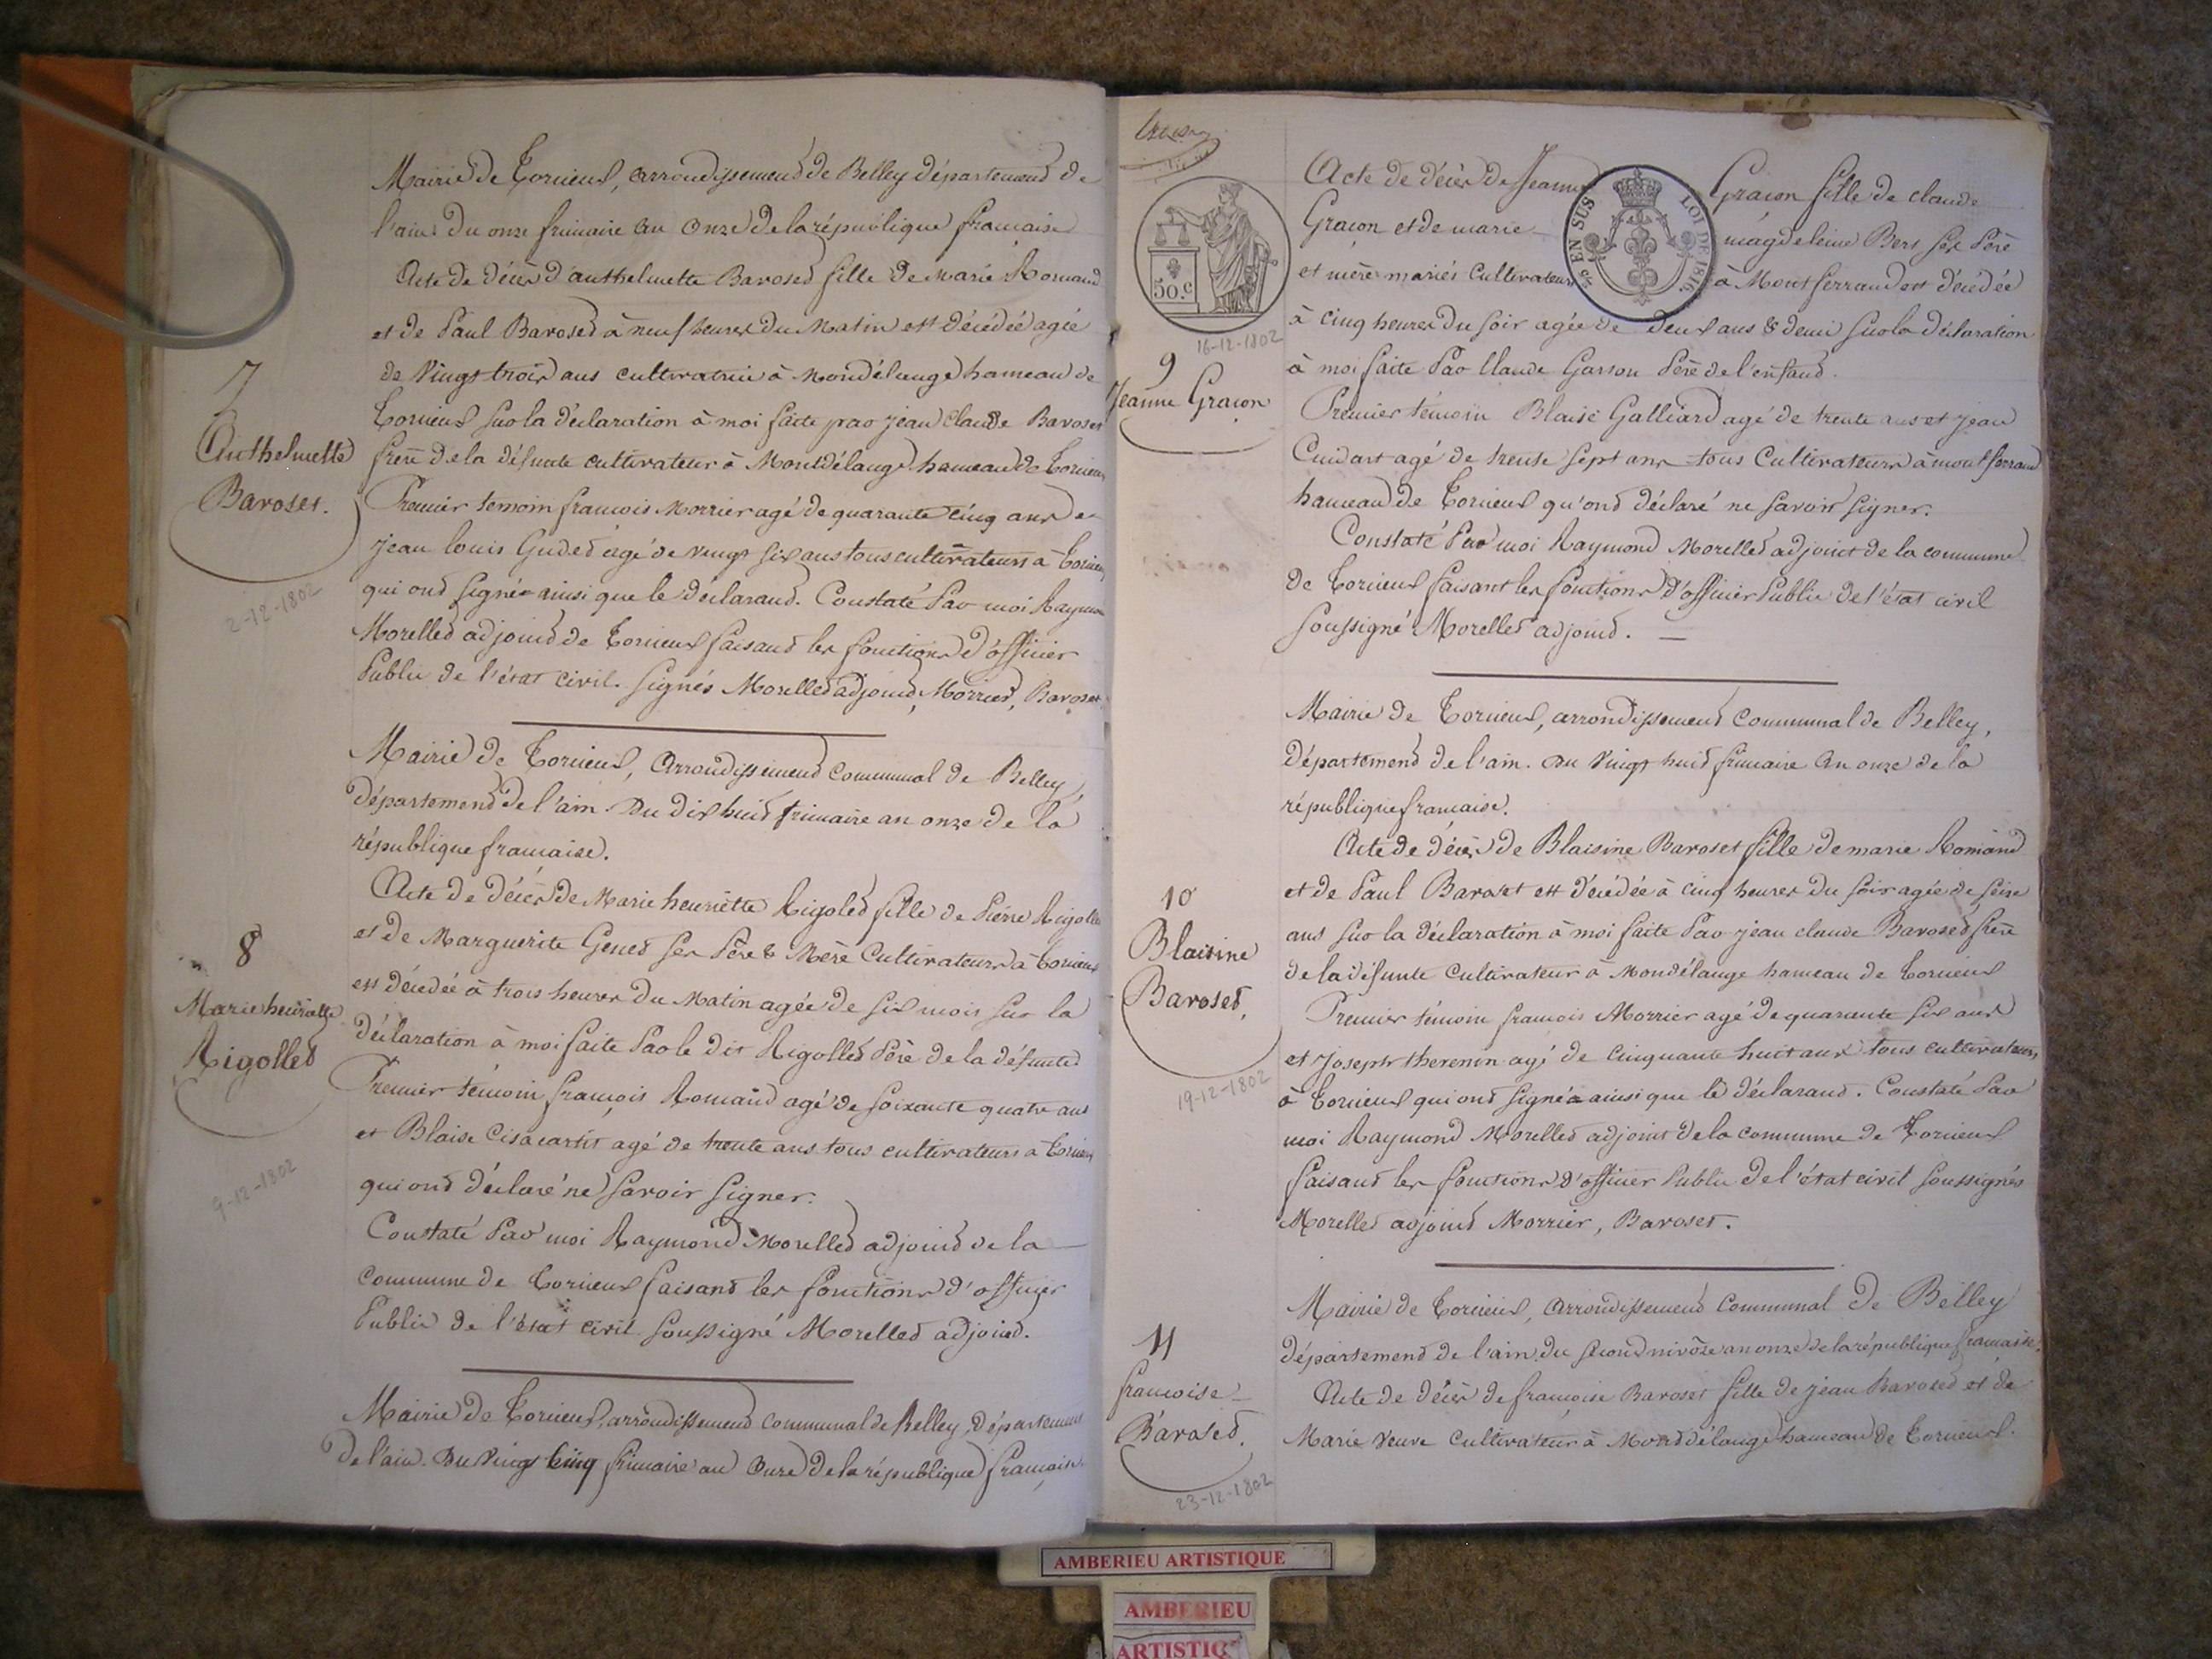 Mairie de Torcieux, arrondissement de Belley département de
l'ain. Du onze frimaire an onze de la république francaise
Acte de décès d'anthelmette Baroset fille de Marie Romand
et de Paul Baroset à neuf heures du Matin est décédée agée
de Vingt trois ans cultivatrice à Mondélange hameau de
Torcieux sur la déclaration à moi faite par jean Claude Baroset
frere de la défunte cultivateur à Montdélange hameau de Torcieux
Premier temoin francois Morrier agé de quarante cinq ans et
jean louis Gudet agé de vingt six ans tous cultivateurs a Torcieux
qui ont signé ainsi que le déclarand. Constaté Par moi Raymond
Morellet adjoint de Torcieux faisand les fonctions d'officier
Public de l'état civil. signés Morellet adjoint, Morrier, Baroset
7
Anthelmette
Baroset.
2-12-1802
Mairie de Torcieux, arrondissement communal de Belley,
département de l'ain. Du dix huit frimaire an onze de la
république francaise.
Acte de décès de Marie henriette Rigolet fille de Pierre Rigollet
et de Marguerite Genet ses Père & Mère Cultivateurs à Torcieux
est décédée à trois heures du Matin agée de six mois sur la
déclaration à moi faite Par le dit Rigollet Père de la défunte
Premier témoin francois Romand agé de soixante quatre ans
et Blaise agé de trente ans tous cultivateurs a Torcieux
qui ont déclaré ne savoir signer.
Constaté Par moi Raymond Morellet adjoint de la
commune de Torcieux faisand les fonctions d'officier
Public de l'état civil soussigné Morellet adjoint.
8
Marie henriette
Rigollet
9-12-1802
Mairie de Torcieux, arrondissement communal de Belley, département
de l'ain. Du Vingt cinq frimaire an onze de la république francaise
Acte de décès de Jeanne Gracon fille de claude
Gracon et de marie magdeleine Bert ses Père
et mère mariés Cultivateurs à Montferrand est décédée
à cinq heures du soir agée de deux ans & demi sur la déclaration
à moi faite Par Claude Garson Père de l'enfand.
Premier témoin Blaise Galliard agé de trente ans et jean
Cuidart agé de trente sept ans tous Cultivateurs à montferrand
hameau de Torcieux qu'ond déclaré ne savoir signer.
Constaté Par moi Raymond Morellet adjoint de la commune
de Torcieux faisant les fonctions d'officier Public de l'état civil
soussigné Morellet adjoint.
50.c
EN SUS
LOI DE 1816
16-12-1802
9
Jeanne Gracon
Mairie de Torcieux, arrondissement Communal de Belley,
département de l'ain. Du Vingt huit frimaire an onze de la
république francaise.
Acte de décès de Blaisine Baroset fille de marie Romand
et de Paul Baroset est décédée à cinq heures du soir agée de seize
ans sur la déclaration à moi faite Par jean claude Baroset frere
de la défunte cultivateur à Mondélange hameau de Torcieux
Premier témoin francois Morrier agé de quarante six ans
et Joseph thevenin agé de cinquante huit ans tous cultivateurs
à Torcieux qui ont signé ainsi que le déclarand. Constaté Par
moi Raymond Morellet adjoint de la commune de Torcieux
faisand les fonctions d'officier Public de l'état civil soussignés
Morellet adjoint Morrier, Baroset.
10
Blaisine
Baroset.
19-12-1802
Mairie de Torcieux, arrondissement Communal de Belley
département de l'ain. du second nivôse an onze de la république francaise,
Acte de décès de francoise Baroset fille de jean Baroset et de
Marie Veuve Cultivateur à Montdélange hameau de Torcieux.
11
francoise
Baroset.
23-12-1802
AMBERIEU ARTISTIQUE
AMBERIEU
ARTISTIQ